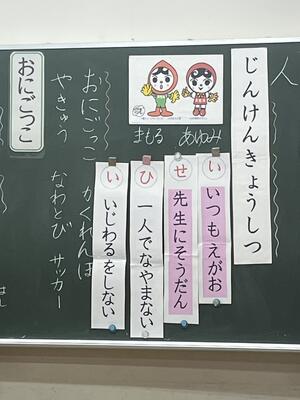 人
じんけんきょうしつ
まもる
あゆみ
い
いつもえがお
せ
先生にそうだん
ひ
一人でなやまない
い
いじわるをしない
おにごっこ
かくれんぼ
やきゅう
なわとび
サッカー
おにごっこ